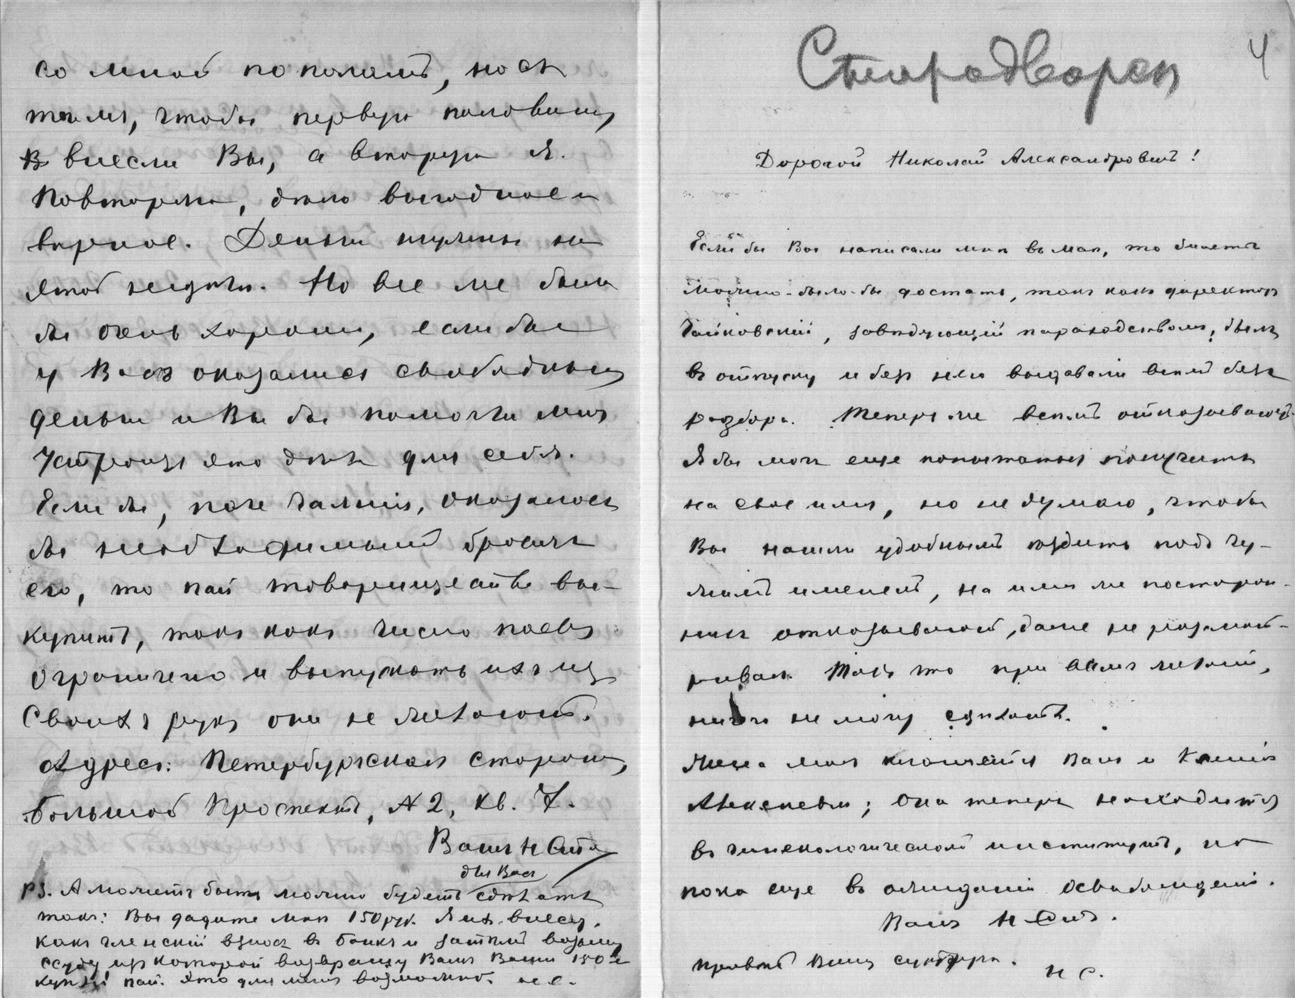 со мной пополамъ, но съ
тѣмъ, чтобы первую половину
внесли Вы, а вторую я.
Повторяю, дѣло выгодное и
верное. Деньги нужны на
этой недѣли. Но все же было
бы очень хорошо, если бы
у Васъ оказались свободныя
деньги и Вы бы помогли мнѣ
устроить это дѣло для себя.
Если бы, паче чаянія, оказалось
бы необходимымъ бросить
его, то пай товарищество вы-
купитъ, такъ какъ число паевъ
ограничено и выпускать ихъ изъ
своихъ рукъ они не желаютъ.
Адресъ: Петербургская сторона,
Большой Проспектъ, № 2, кв. 7.
Вашъ Н
для Васъ
PS. А можетъ быть можно будетъ сдѣлать
такъ: Вы дадите мнѣ 150 руб. Я ихъ внесу,
какъ членскій взносъ въ банкъ и затѣмъ возьму
ссуду изъ которой возвращу Вамъ Ваши 150 и
куплю пай. Это для меня возможно. Н. С.
4
Дорогой Николай Александровичъ!
Если бы Вы написали мнѣ въ маѣ, то билетъ
можно было-бы достать, такъ какъ директоръ
завѣдующій пароходствомъ, былъ
въ отпуску и безъ него выдавали всѣмъ безъ
разбора. Теперь же всѣмъ отказываютъ.
Я бы могъ еще попытаться получить
на свое имя, но не думаю, чтобы
Вы нашли удобнымъ ѣздить подъ чу-
жимъ именемъ, на имя же посторон-
нихъ отказываютъ, даже не разсмат-
ривая. Такъ что при всемъ желаніи,
ничего не могу сдѣлать.
Жена моя кланяется Вамъ и
Алексѣевнѣ; она теперь находится
въ гинекологическомъ институтѣ, но
пока еще въ ожиданіи освобожденія.
Вашъ Н
Привѣтъ Вашей супругѣ.
Н С.